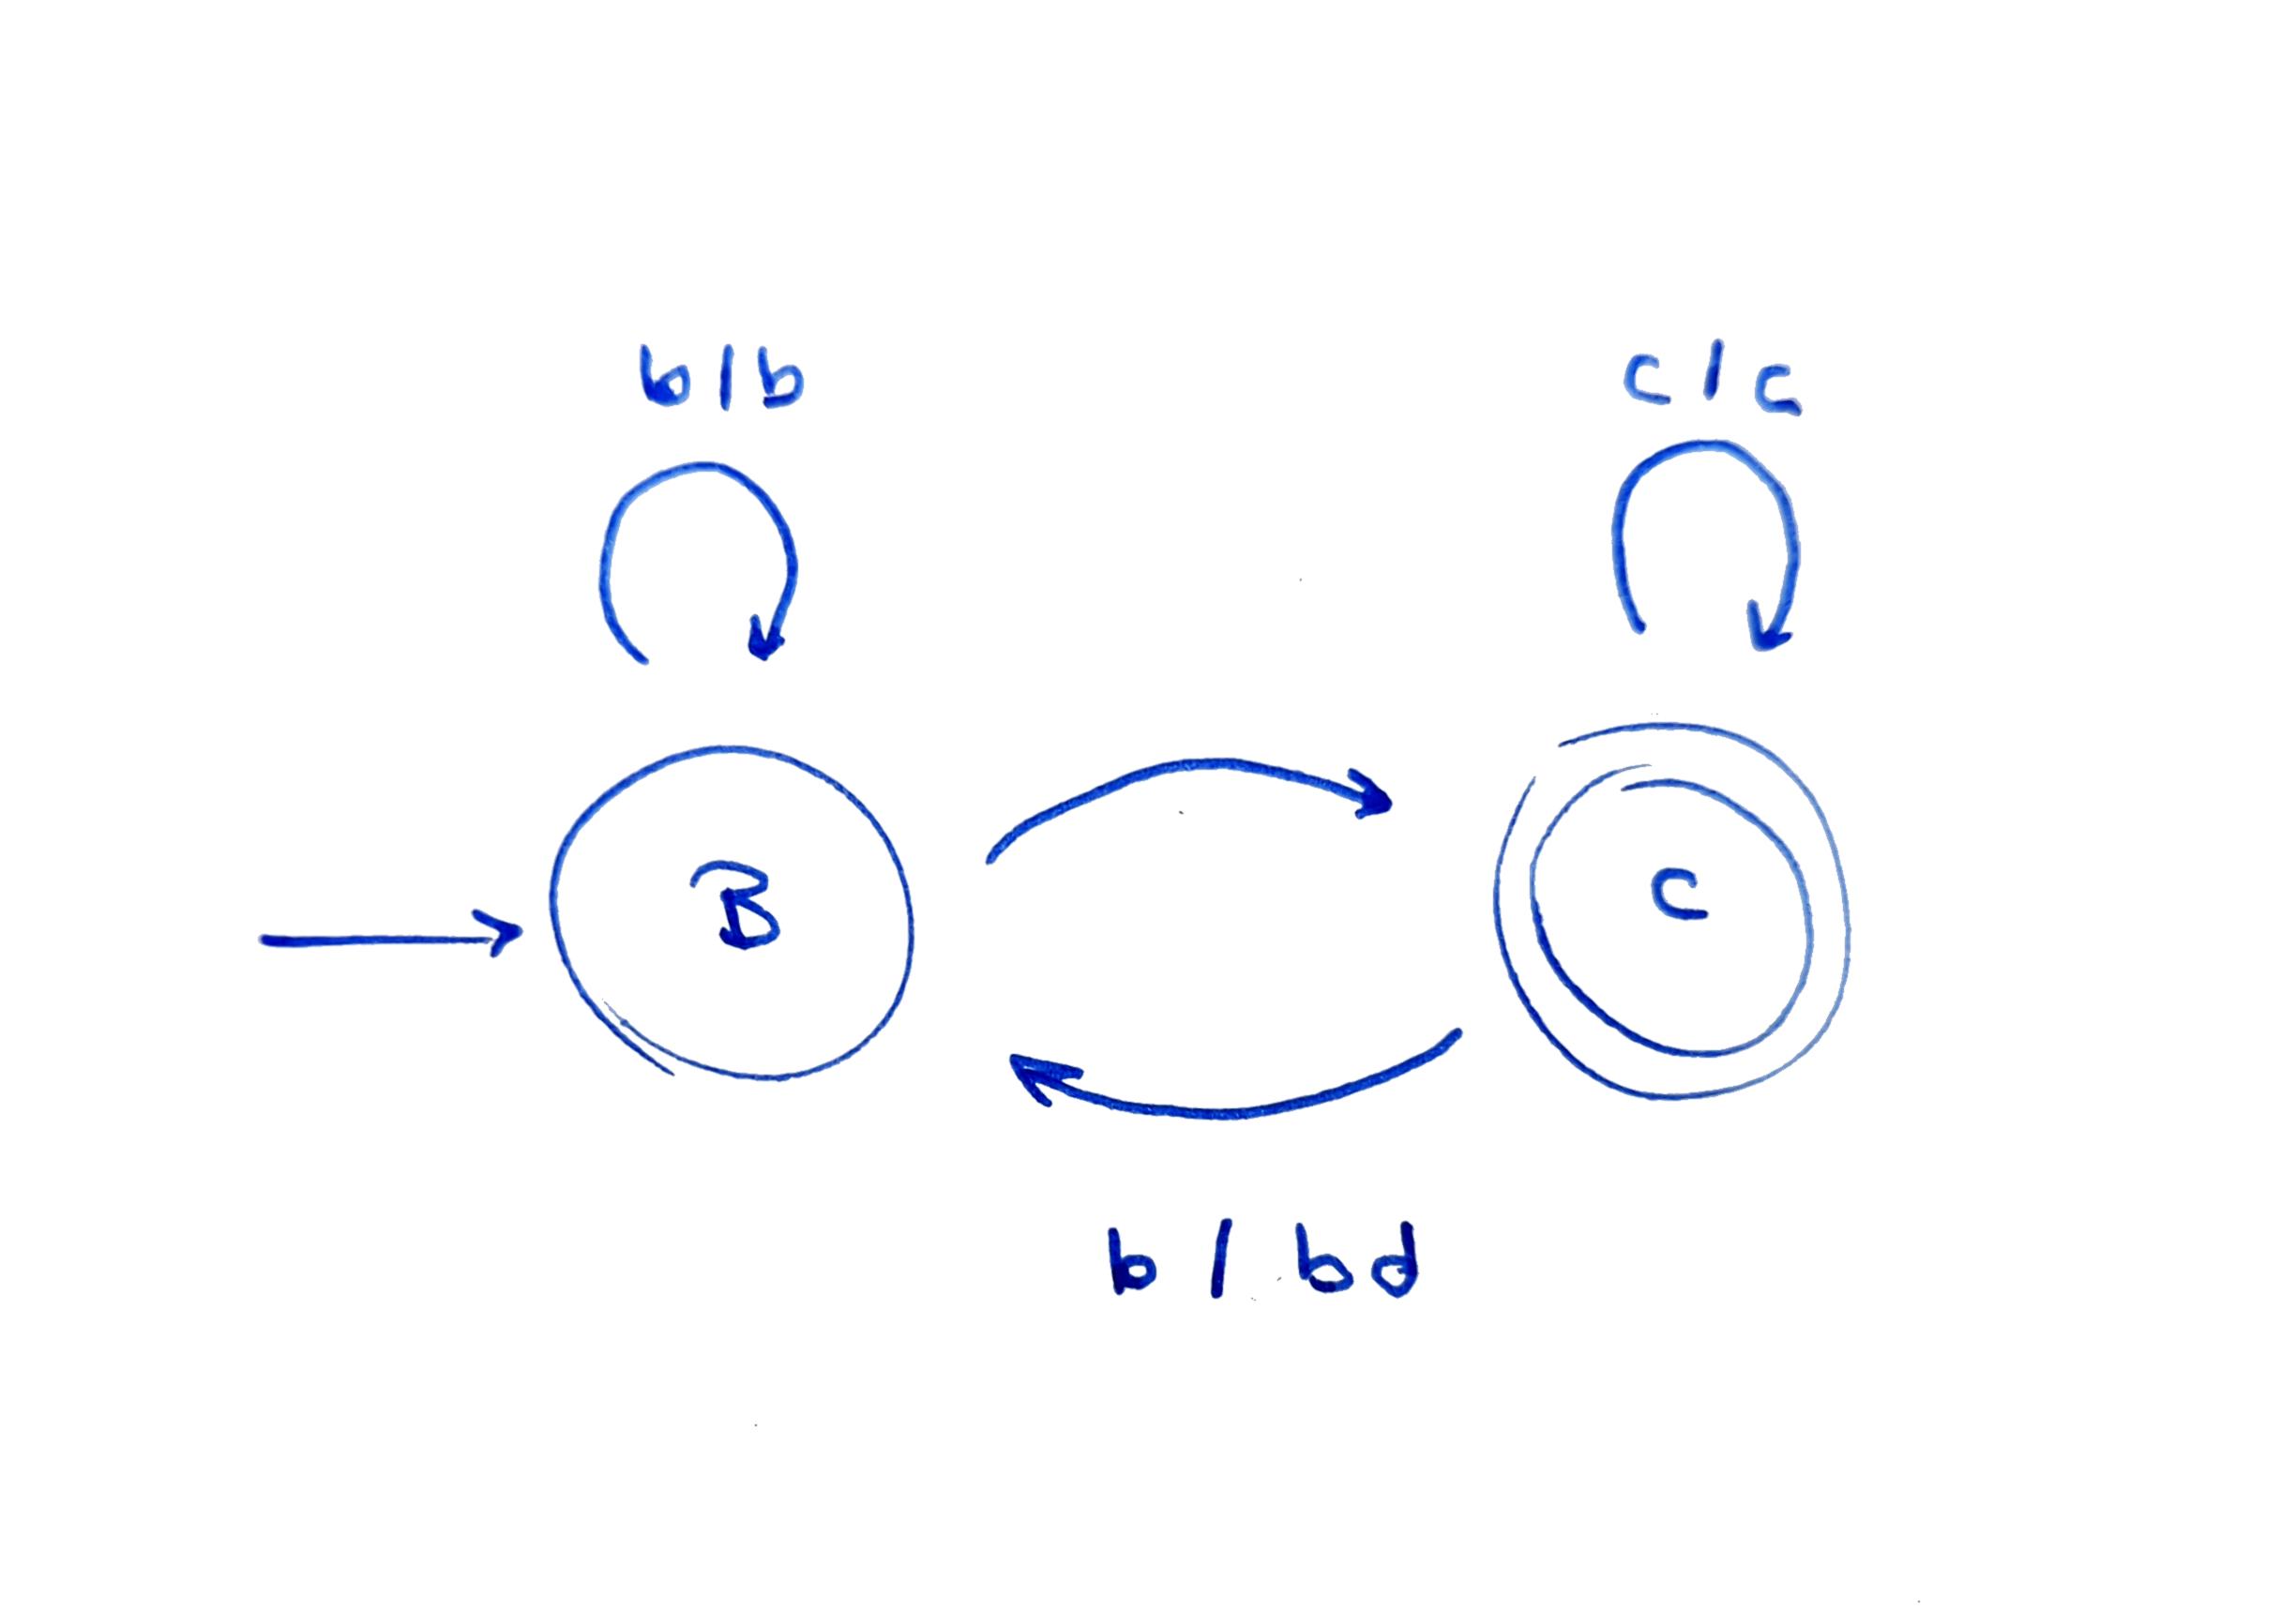 b/b c/c
B C
b/bd